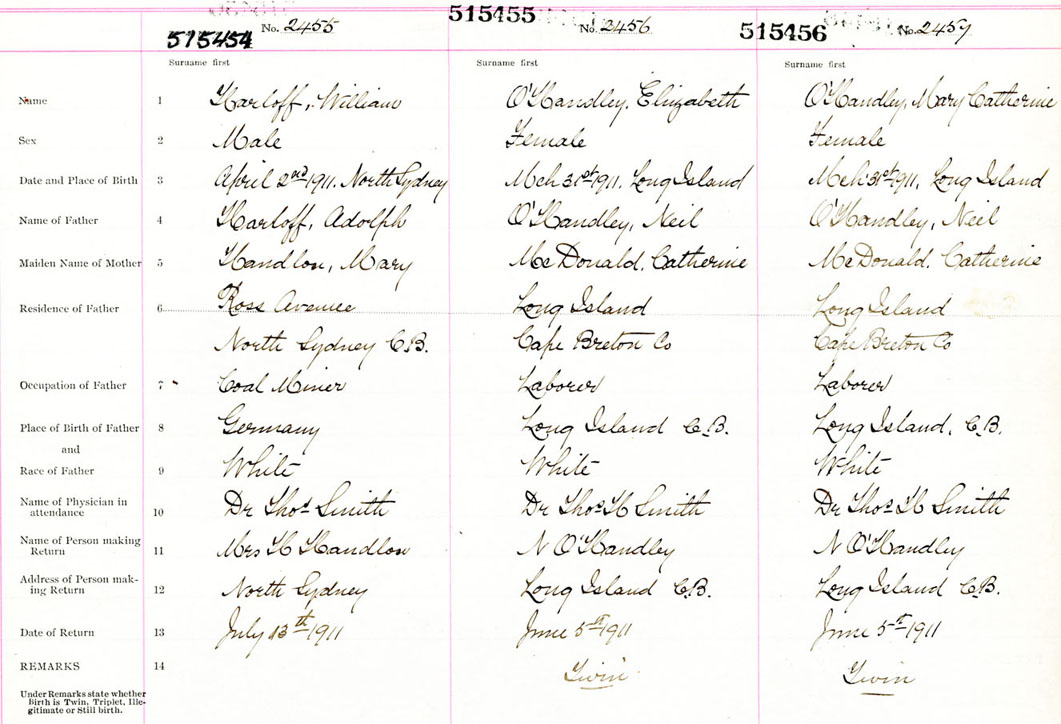 515454 No. 2455 515455 No. 2456 515456 No. 2457
Surname first Surname first Surname first
Name 1 Harloff, William O'Handley, Elizabeth O'Handley, Mary Catherine
Sex 2 Male Female Female
Date and Place of Birth 3 April 2nd 1911. North Sydney Mch 31st 1911, Long Island Mch 31st 1911, Long Island
Name of Father 4 Harloff, Adolph O'Handley, Neil O'Handley, Neil
Maiden Name of Mother 5 Handlon, Mary McDonald, Catherine McDonald, Catherine
Residence of Father 6 Ross Avenue Long Island Long Island
North Sydney C.B. Cape Breton Co Cape Breton Co
Occupation of Father 7 Coal Miner Laborer Laborer
Place of Birth of Father 8 Germany Long Island C.B. Long Island, C.B.
and
Race of Father 9 White White White
Name of Physician in
attendance 10 Dr Thos Smith Dr Thos H Smith Dr Thos H Smith
Name of Person making
Return 11 Mrs H Handlon N O'Handley N O'Handley
Address of Person mak-
ing Return 12 North Sydney Long Island C.B. Long Island C.B.
Date of Return 13 July 13th 1911 June 5th 1911 June 5th 1911
REMARKS 14 Twin Twin
Under Remarks state whether
Birth is Twin, Triplet, Ille-
gitimate or Still birth.